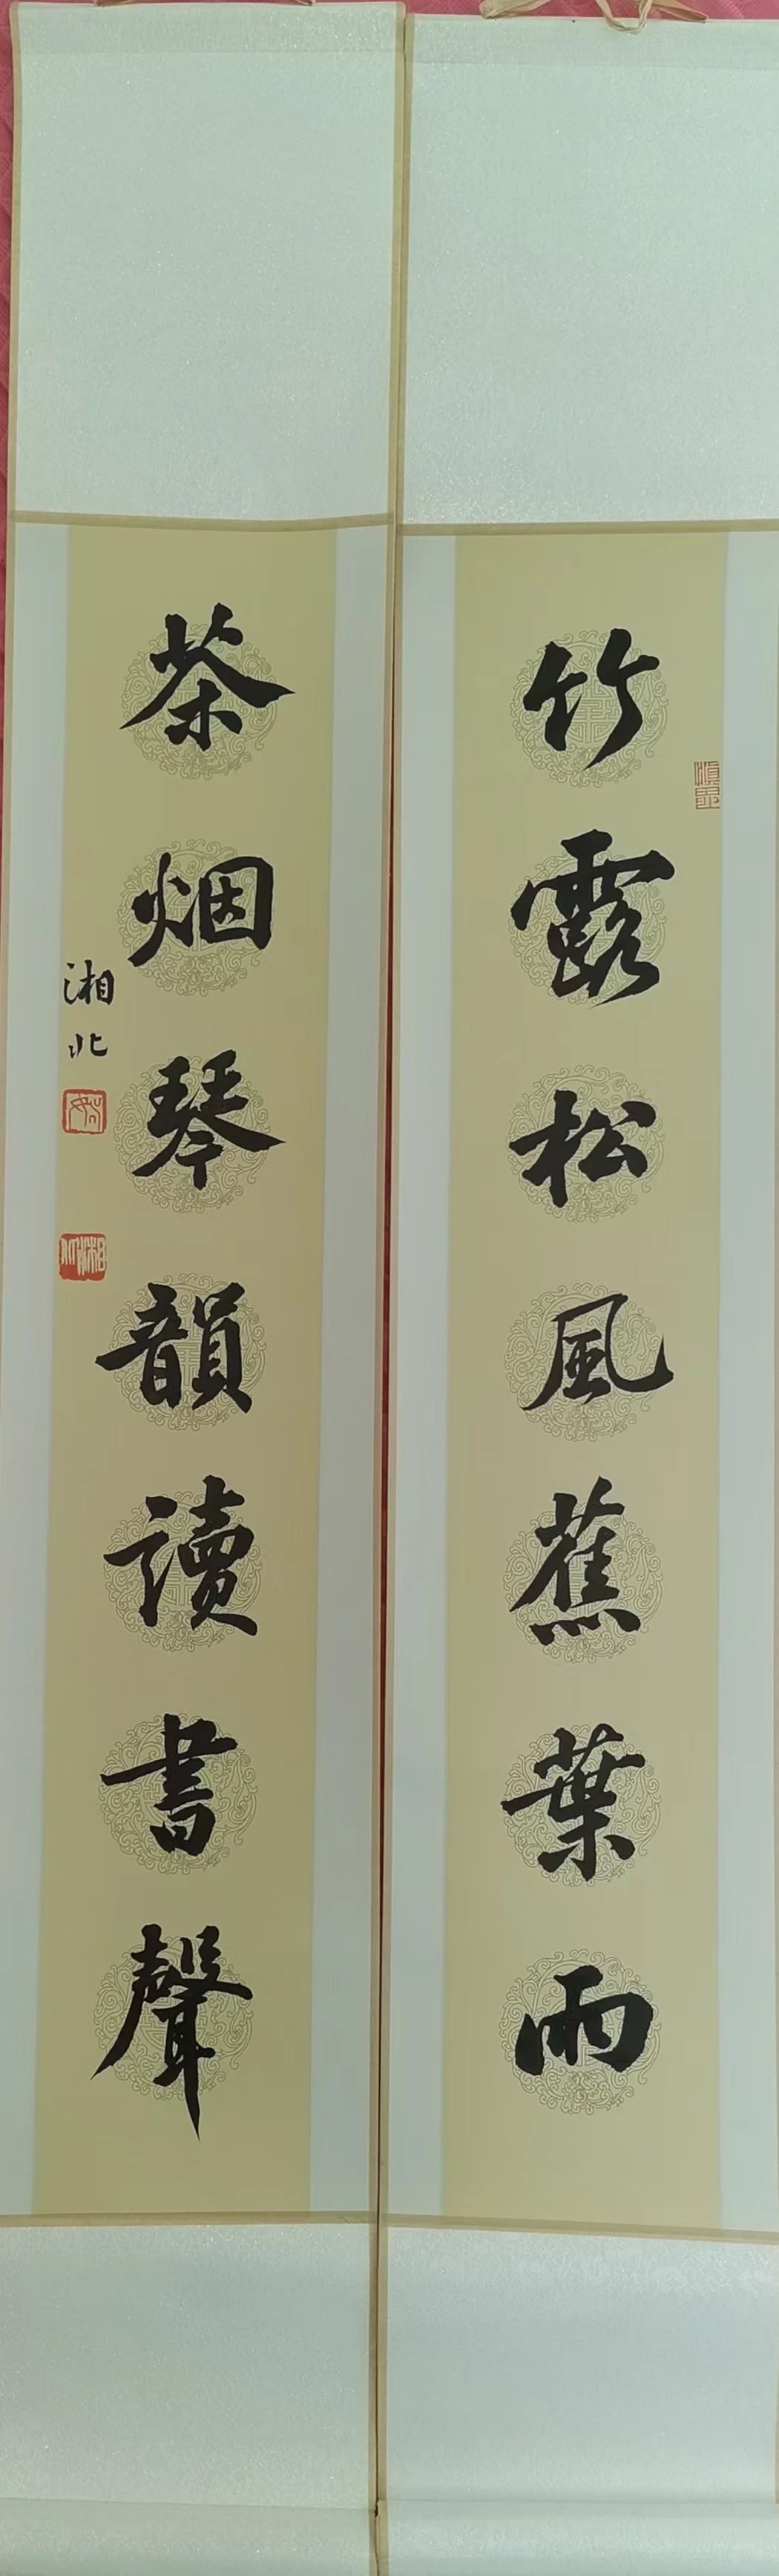 竹露松風蕉葉雨
茶烟琴韻讀書聲
湘北